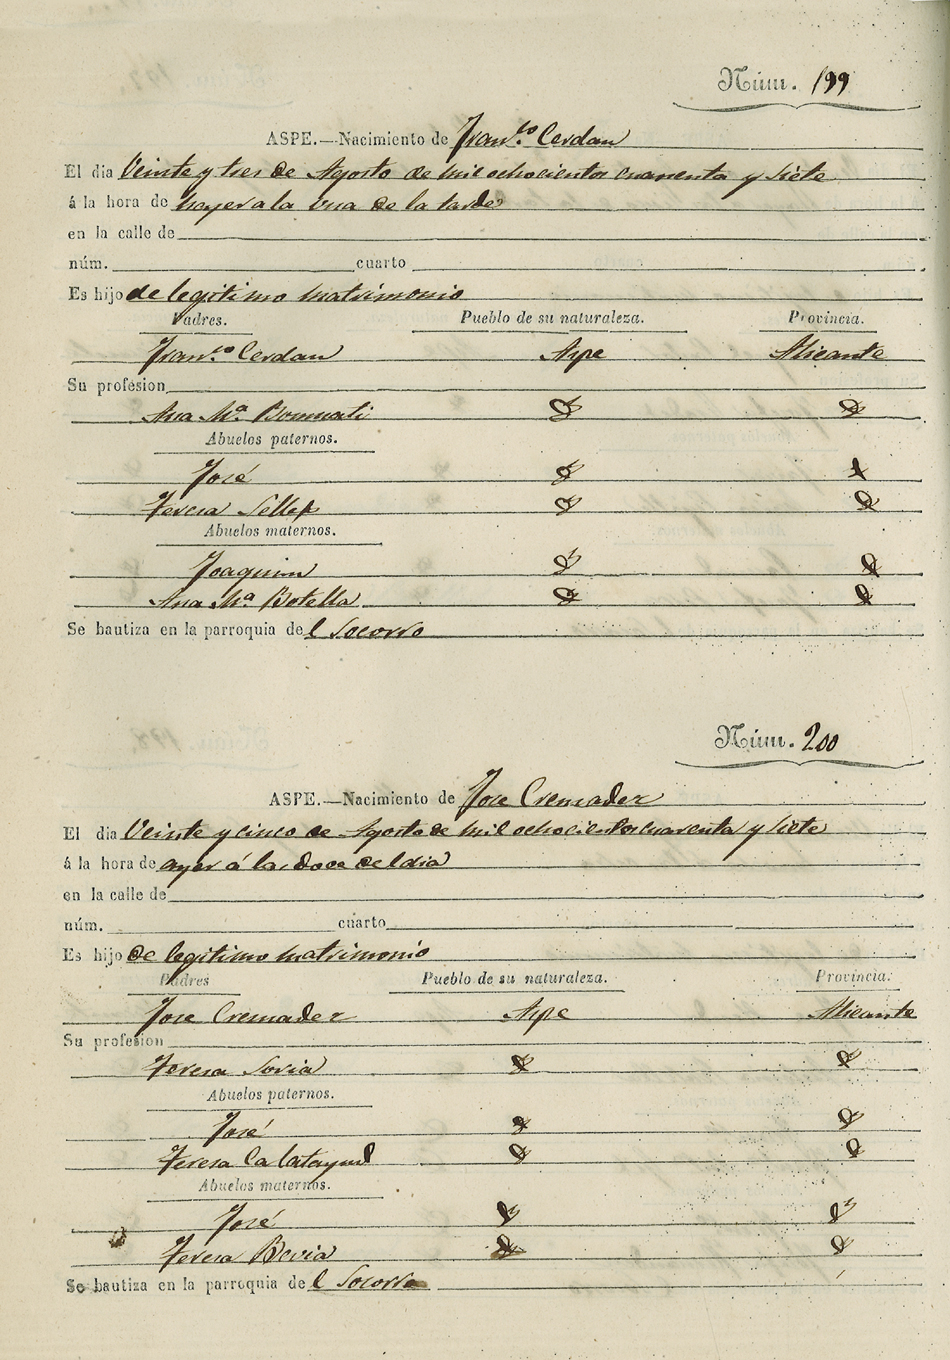 Núm. 199
ASPE.—Nacimiento de Fran.co Cerdan
El dia Veinte y tres de Agosto de mil ochocientos cuarenta y siete
á la hora de hayer a la una de la tarde
en la calle de
núm. cuarto
Es hijo de legitimo matrimonio
Padres. Pueblo de su naturaleza. Provincia.
Fran.co Cerdan Aspe Alicante
Su profesion
Ana M.a Bonmati
Abuelos paternos.
José
Teresa Selles
Abuelos maternos.
Joaquin
Ana M.a Botella
Se bautiza en la parroquia del Socorro
Núm. 200
ASPE.—Nacimiento de Jose Cremades
El dia Veinte y cinco de Agosto de mil ochocientos cuarenta y siete
á la hora de ayer á las doce del dia
en la calle de
núm. cuarto
Es hijo de legitimo matrimonio
Padres Pueblo de su naturaleza. Provincia.
Jose Cremades Aspe Alicante
Su profesion
Teresa Soria
Abuelos paternos.
José
Teresa Calatayud
Abuelos maternos.
José
Teresa Bevia
Se bautiza en la parroquia del Socorro